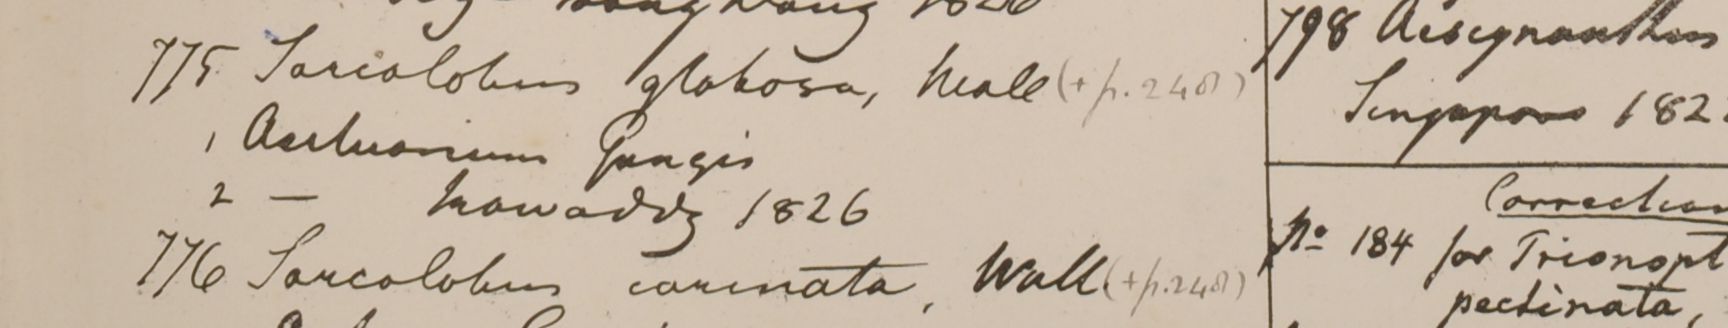 1826
775 Sarcolobus globosa, Wall (+p. 248)
1 Aestuarium Gangis
2 — Irrawaddy 1826
776 Sarcolobus carinata, Wall (+p. 248)
798 Aeschynanthus
Singapore 182
Correction
No 184 for Trionopt
pectinata,